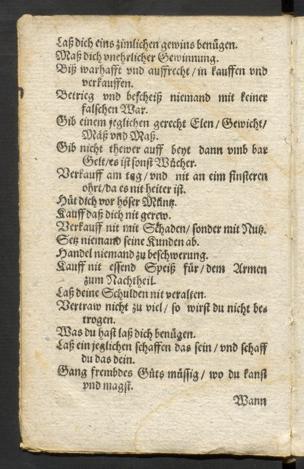 Laß dich eins zimlichen gewins benügen.
Maß dich vnehrlicher Gewinnung.
Biß warhafft vnd auffrecht / in kauffen vnd
verkauffen.
Betrieg vnd bescheiß niemand mit keiner
falschen War.
Gib einem jeglichen gerecht Elen / Gewicht /
Mäß vnd Maß.
Gib nicht thewer auff beyt dann vmb bar
Gelt / es ist sonst Wücher.
Verkauff am tag / vnd nit an eim finsteren
ohrt / da es nit heiter ist.
Hüt dich vor böser Müntz.
Kauff daß dich nit gerew.
Verkauff nit mit Schaden / sonder mit Nutz.
Setz niemand seine Kunden ab.
Handel niemand zu beschwerung.
Kauff nit essend Speiß für / dem Armen
zum Nachtheil.
Laß deine Schulden nit veralten.
Vertraw nicht zu viel / so wirst du nicht be-
trogen.
Was du hast laß dich benügen.
Laß ein jeglichen schaffen das sein / vnd schaff
du das dein.
Gang frembdes Gůts müssig / wo du kanst
vnd magst.
Wann